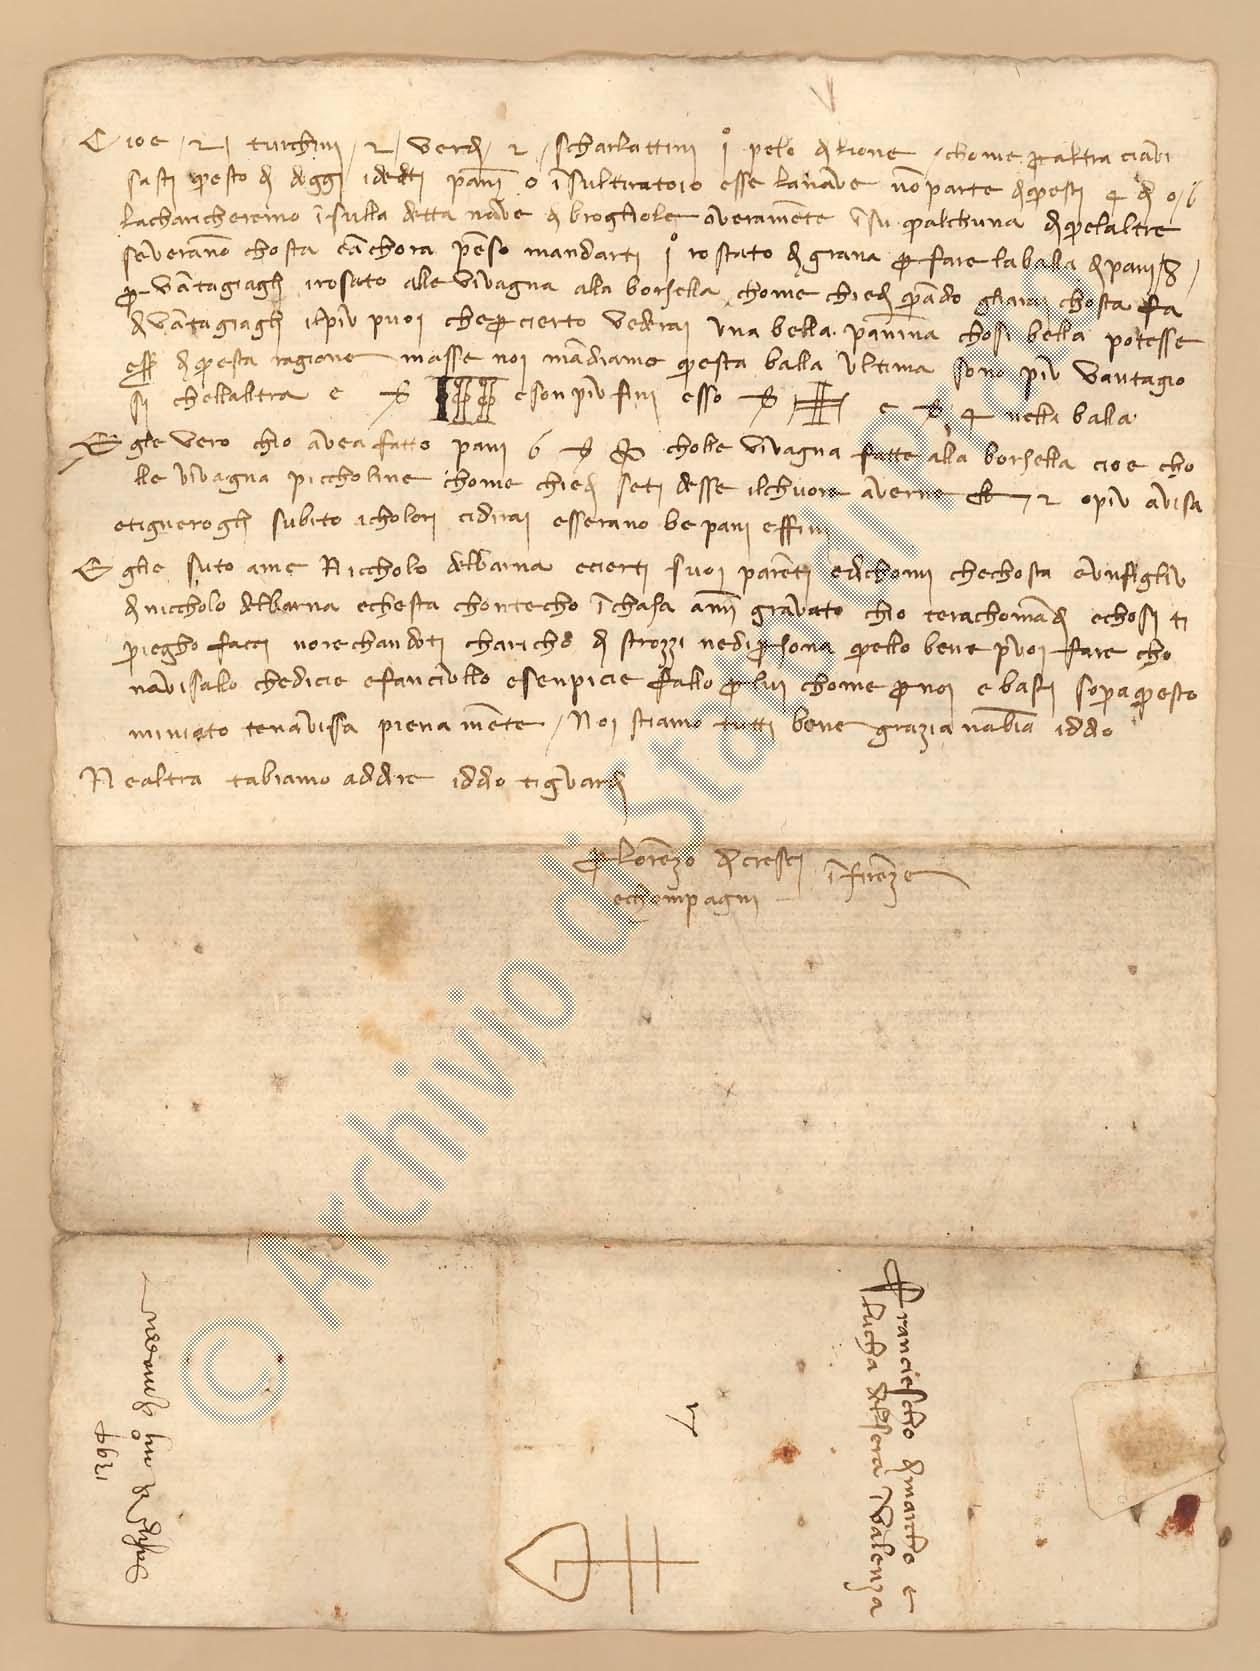 Cioe / 2 / turchini / 2 / verdi / 2 / scharlattini i° pelo di lione / chome per altra ci avi
sasti questo di d oggi i detti pani o in sul tiratoio esse la nave non parte di questi 4 di o 6
la charicheremo in sulla detta nave di broghiole overamente in su qualchuna di quelaltre
se verano chosta e anchora penso mandarti i° rosato di grana per fare la balla di pani 8 /
per vantagiagli i rosato alle vivagna alla borsella chome chiedi quando gli arai chosta fa
di vantagiagli il piu puoi che per cierto vedrai una bella panina chosi bella potesse
esser di questa ragione masse noi mandiamo questa balla ultima sono piu vantagio
si chellaltra e e son piu fini esso e 4 nella balla
E gle vero chio avea fatto pani 6 cholle vivagna fatte alla borsella cioe cho
lle vivagna piccholine chome chiedi se ti desse il chuore averne 2 o piu avisa
e tignerogli subito i cholori ci dirai e sserano be pani e ffini
E gle suto a me Niccholo delbarna e cierti suoi parenti e dichomi che chosta e un figliu
di niccholo delbarna e che sta chontecho in chasa ami gravato chio te rachomandi e chosi ti
priegho facci no rechandoti charicho di strozzi ne di persona quello bene puoi fare cho
navisalo che dicie e fanciullo e senpicie fallo per lui chome per noi e basti sopra questo
miniato tenavissa piena mente / Noi stiamo tutti bene grazia nabia iddo
Ne altra tabiamo a ddire iddo ti guardi
per Lorenzo di cresci
e chompagni in firenze
Franciescho di marcho e
lucha del sera in Valenza
1394